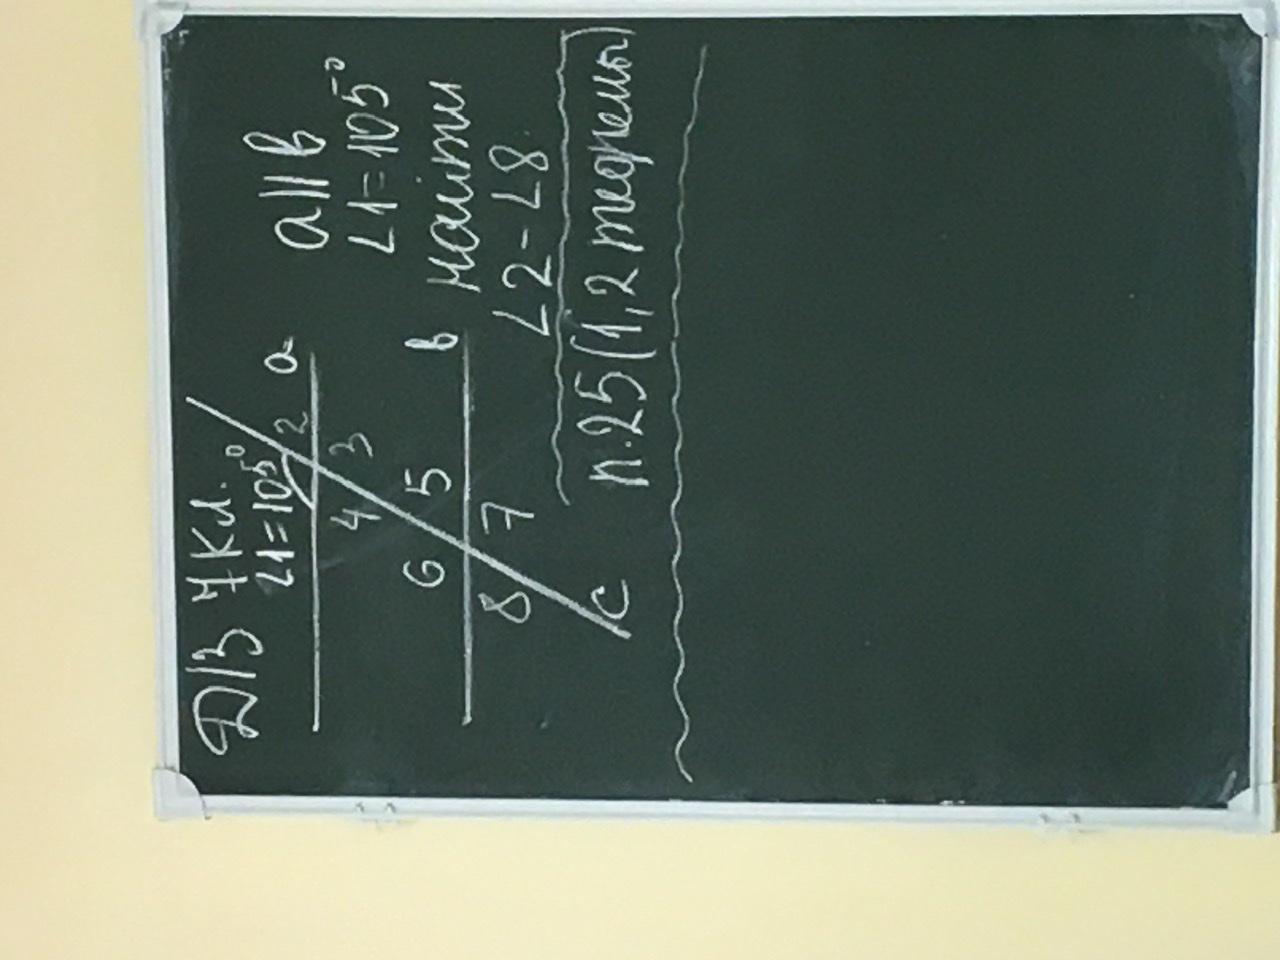 Д/З 7 кл.
∠1=105°
2
a
4
3
6
5
b
8
7
c
a||b
∠1=105°
найти
∠2-∠8.
п.25(1,2 теоремы)